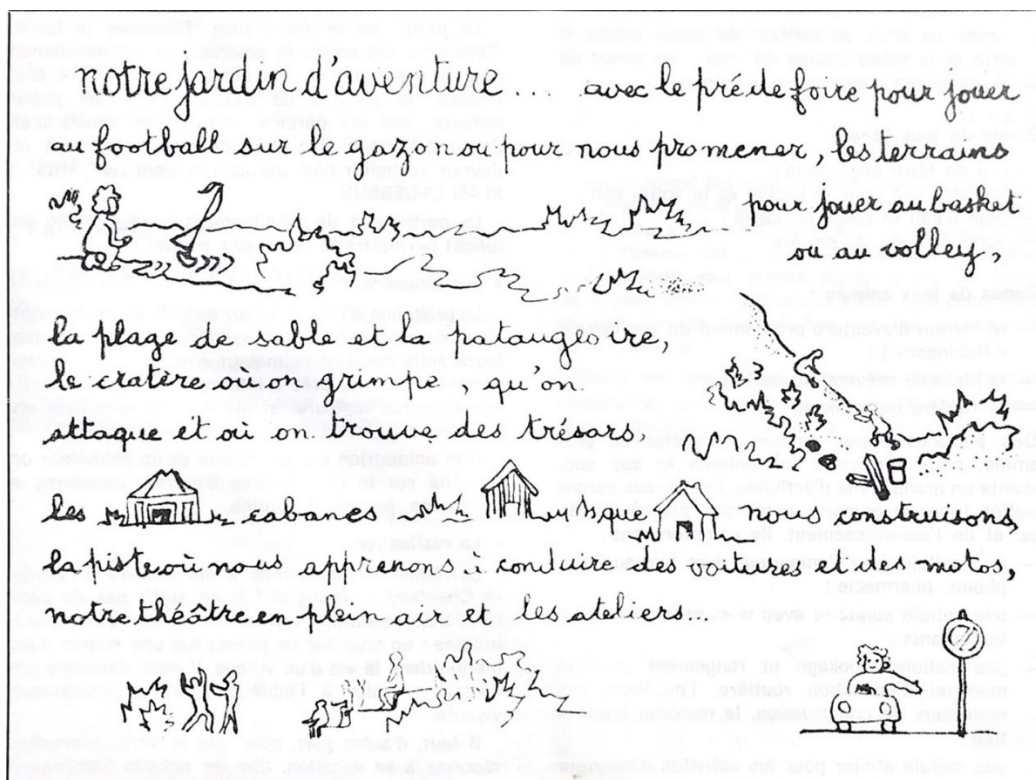 notre jardin d'aventure... avec le pré de foire pour jouer
au football sur le gazon ou pour nous promener, les terrains
pour jouer au basket
ou au volley,
la plage de sable et la pataugeoire,
le cratère où on grimpe, qu'on
attaque et où on trouve des trésors,
les cabanes que nous construisons,
la piste où nous apprenons à conduire des voitures et des motos,
notre théâtre en plein air et les ateliers...